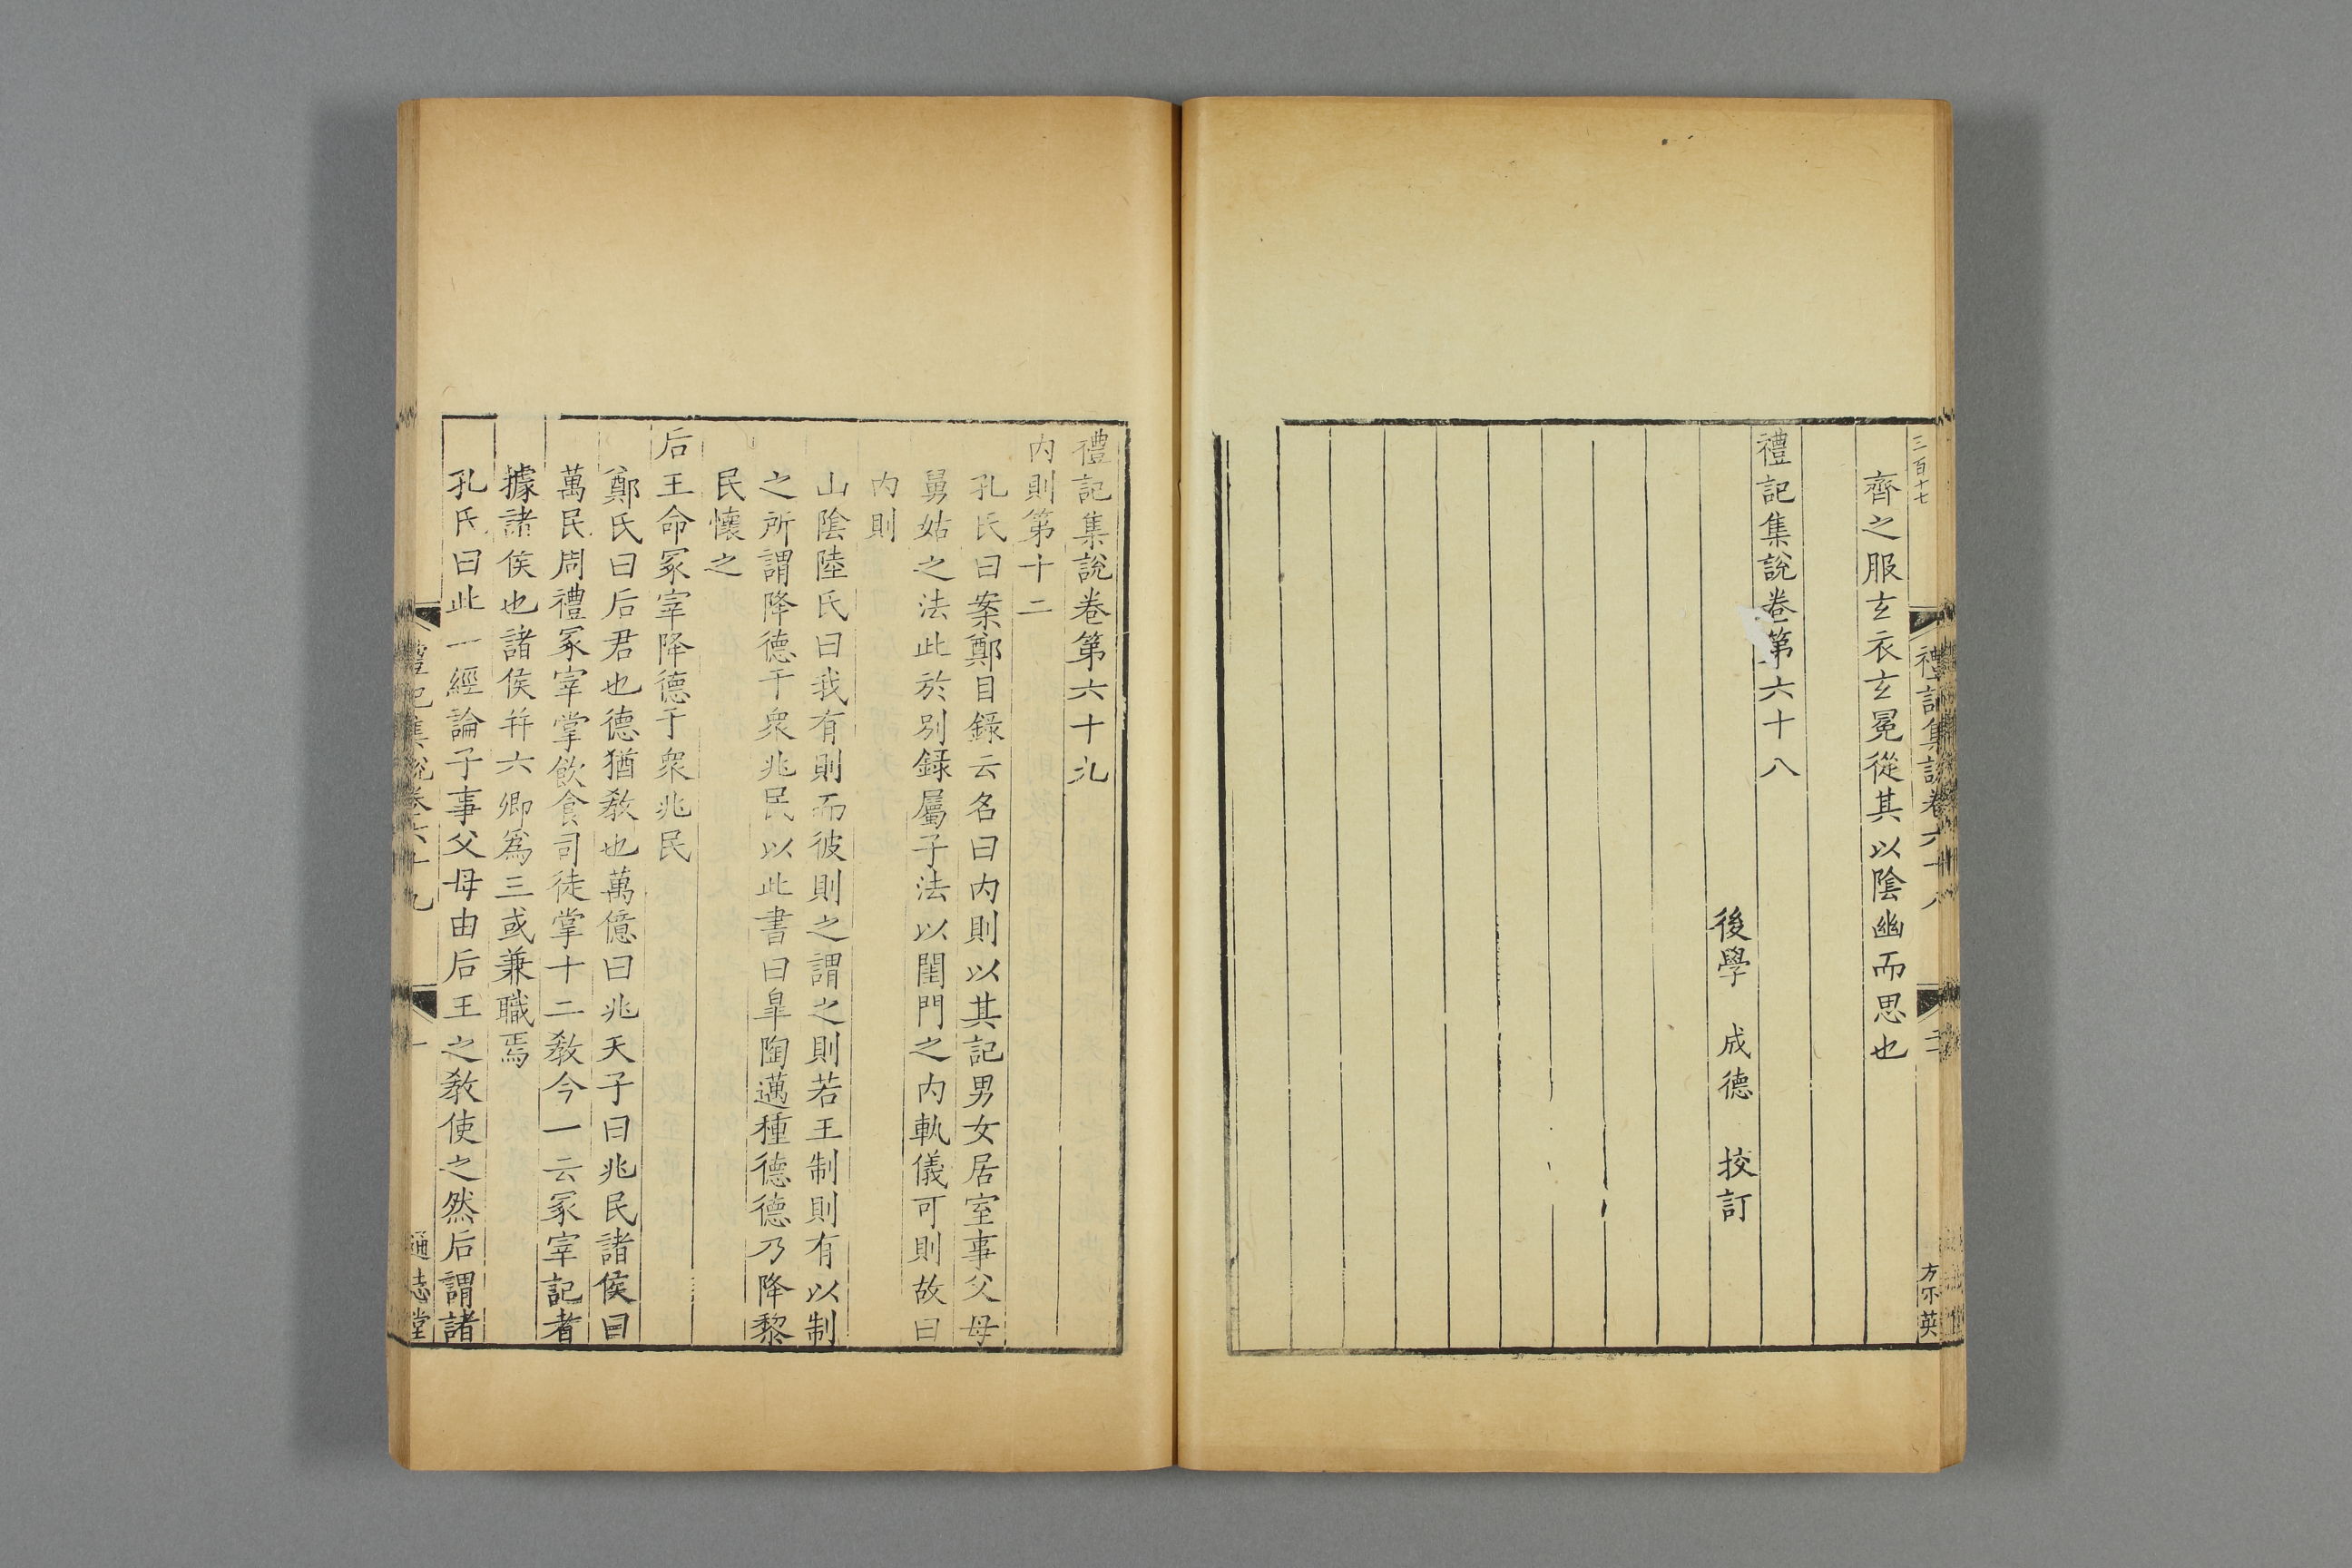 三百十七
禮記集說卷六十八
方尓英
齊之服玄衣玄冕從其以陰幽而思也
禮記集說卷第六十八
後學 成德 挍訂
禮記集說卷第六十九
內則第十二
孔氏曰案鄭目錄云名曰內則以其記男女居室事父母
舅姑之法此於別錄屬子法以閨門之內軌儀可則故曰
內則
山陰陸氏曰我有則而彼則之謂之則若王制則有以制
之所謂降德于衆兆民以此書曰臯陶邁種德德乃降黎
民懷之
后王命冢宰降德于衆兆民
鄭氏曰后君也德猶敎也萬億曰兆天子曰兆民諸侯曰
萬民周禮冢宰掌飲食司徒掌十二敎今一云冢宰記者
據諸侯也諸侯幷六卿爲三或兼職焉
孔氏曰此一經論子事父母由后王之敎使之然后謂諸
禮記集說卷六十九
一
通志堂